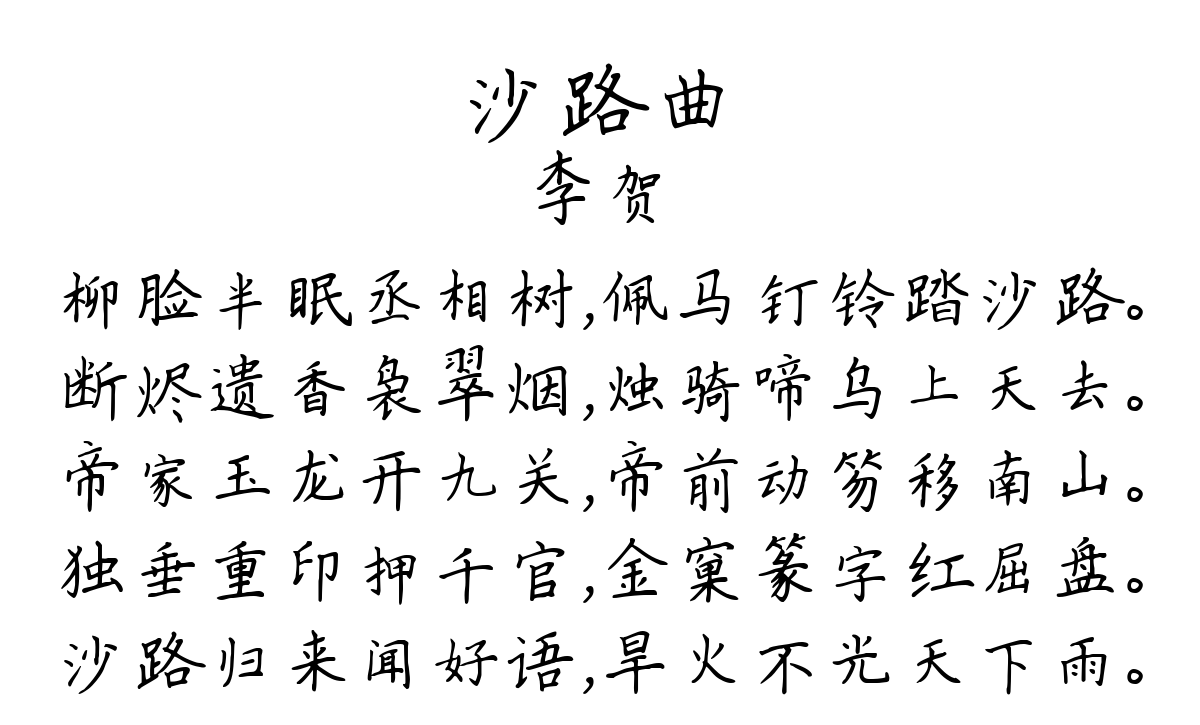 沙路曲
李贺
柳脸半眠丞相树,佩马钉铃踏沙路。
断烬遗香袅翠烟,烛骑啼乌上天去。
帝家玉龙开九关,帝前动笏移南山。
独垂重印押千官,金窠篆字红屈盘。
沙路归来闻好语,旱火不光天下雨。